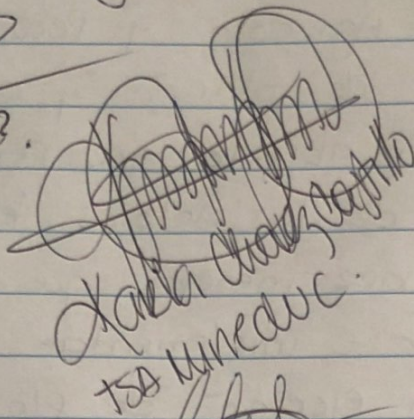 Karla Chavez Castillo
TSA Mineduc.